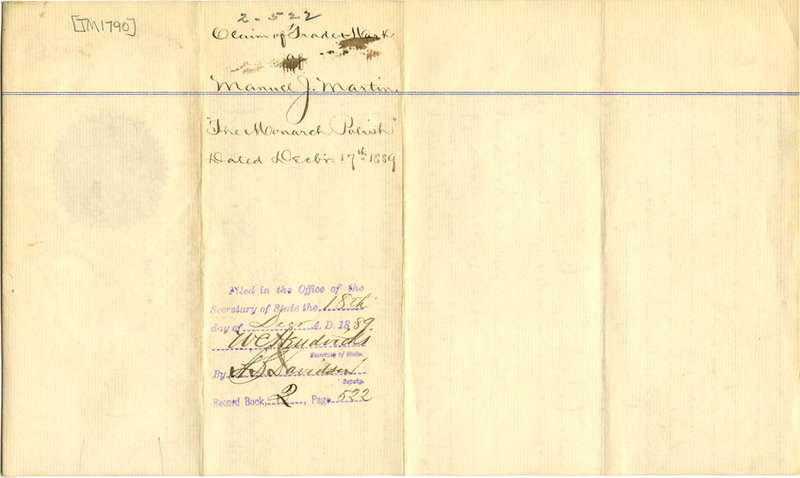 [TM1790]
2-522
Claim of Trade Mark
of
Manuel J. Martin.
"The Monarch Polish"
Dated Decbr. 17th 1889
Filed in the Office of the
Secretary of State the 18th
day of Decr A. D. 1889.
W C Hendricks
Secretary of State.
By A B Davidson
Deputy.
Record Book, 2, Page 522